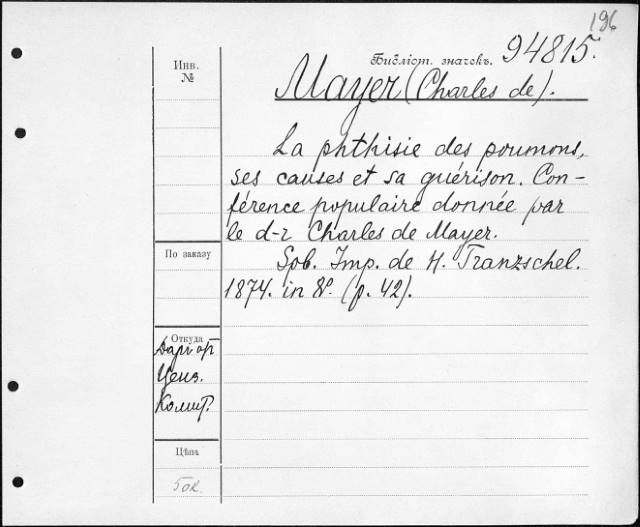 196
Инв.
№
Библіот. значекъ. 94815.
Mayer (Charles de).
La phthisie des poumons,
ses causes et sa guérison. Con-
férence populaire donnée par
le d-r Charles de Mayer.
Spb. Imp. de H. Tranzschel.
1874. in 8º. (p. 42).
По заказу
Откуда
Ценз.
Комит.
Цѣна
50к.